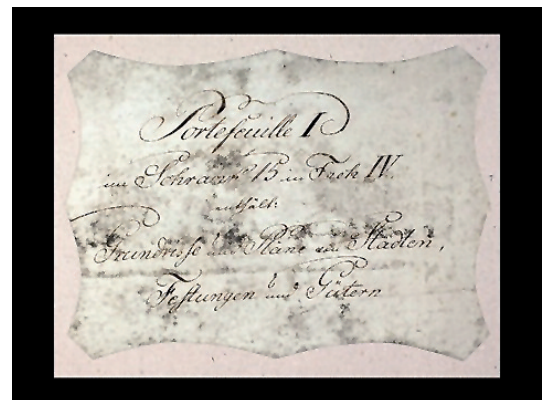 Portefeuille I
im Schrank 15 in Fach IV.
enthält:
Grundrisse und Pläne von Städten,
Festungen und Gütern